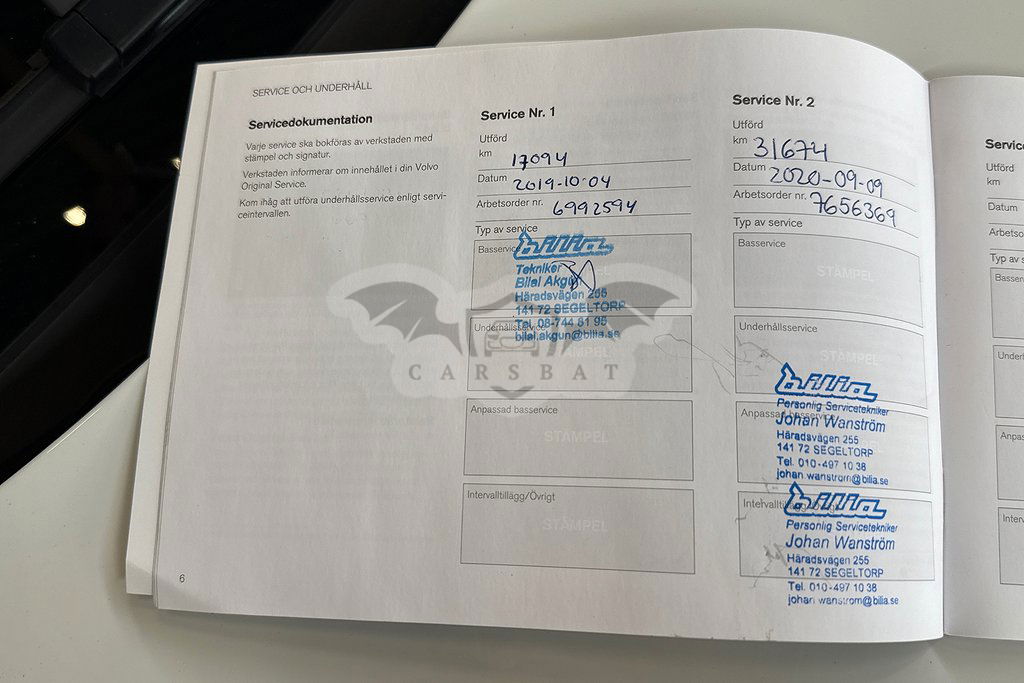 SERVICE OCH UNDERHÅLL
Servicedokumentation
Varje service ska bokföras av verkstaden med
stämpel och signatur.
Verkstaden informerar om innehållet i din Volvo
Original Service.
Kom ihåg att utföra underhållsservice enligt servi-
ceintervallen.
6
Service Nr. 1
Utförd
km 17094
Datum 2019-10-04
Arbetsorder nr. 6992594
Typ av service
Basservice
bilia
Tekniker
Bilal Akgün
Häradsvägen 255
141 72 SEGELTORP
Tel. 08-744 81 95
bilal.akgun@bilia.se
Underhållsservice
STÄMPEL
CARSBAT
Anpassad basservice
STÄMPEL
Intervalltillägg/Övrigt
STÄMPEL
Service Nr. 2
Utförd
km 31674
Datum 2020-09-09
Arbetsorder nr. 7656369
Typ av service
Basservice
STÄMPEL
Underhållsservice
STÄMPEL
bilia
Personlig Servicetekniker
Anpassad basservice
Johan Wanström
Häradsvägen 255
141 72 SEGELTORP
Tel. 010-497 10 38
johan.wanstrom@bilia.se
bilia
Personlig Servicetekniker
Johan Wanström
Häradsvägen 255
141 72 SEGELTORP
Tel. 010-497 10 38
johan.wanstrom@bilia.se
Utförd
km
Datum